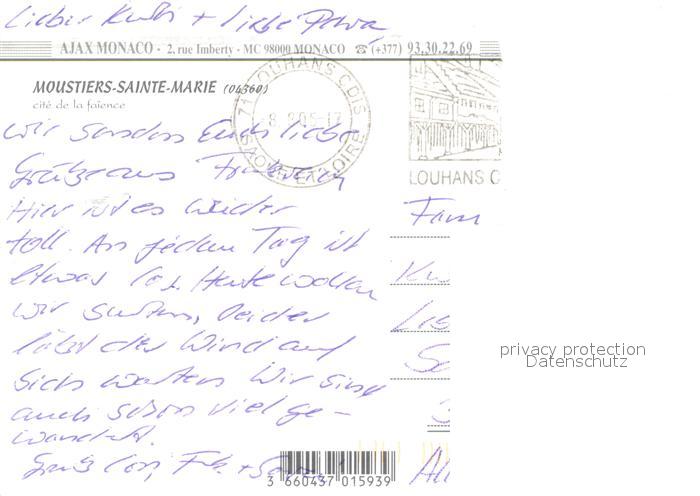 Lieber Kurti + liebe Petra,
AJAX MONACO - 2, rue Imberty - MC 98000 MONACO ☎ (+377) 93.30.22.69
MOUSTIERS-SAINTE-MARIE (04360)
cité de la faïence
71 LOUHANS CDIS
SAONE ET LOIRE
LOUHANS C
wir senden Euch liebe
Grüße aus Frankreich
Hier ist es wieder
toll. An jedem Tag ist
etwas los. Heute wollten
wir surfen, leider
läßt der Wind auf
sich warten. Wir sind
auch schon viel ge-
wandert.
Fam
privacy protection
Datenschutz
3 660437 015939